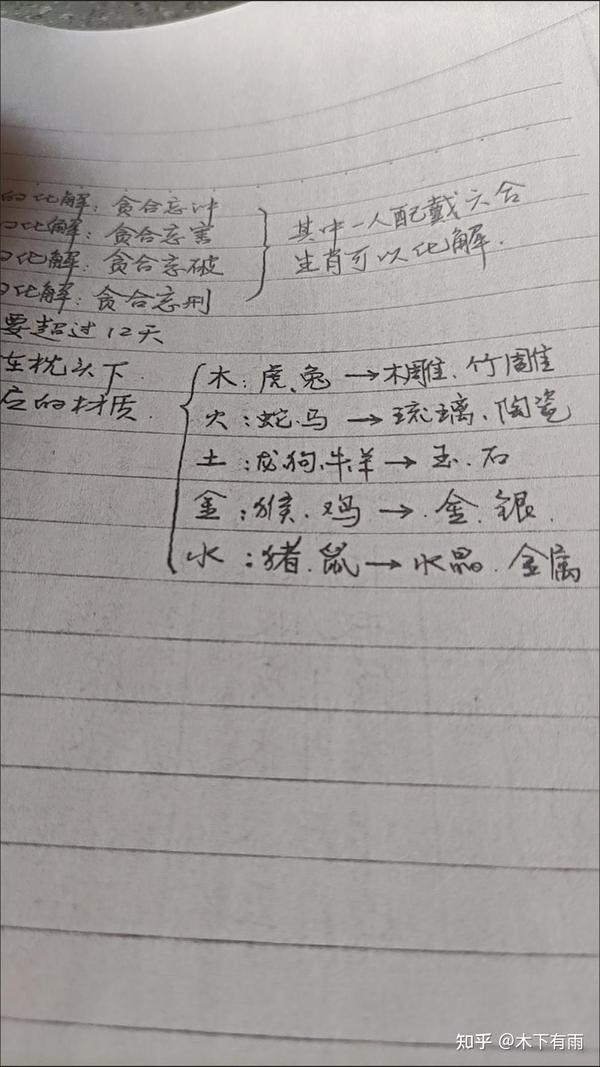 的化解：贪合忘冲
化解：贪合忘害
化解：贪合忘破
化解：贪合忘刑
其中一人配戴六合
生肖可以化解.
要超过12天
在枕头下
应的材质.
木：虎、兔→木雕、竹雕
火：蛇.马→琉璃、陶瓷
土：龙狗、牛、羊→玉、石
金：猴、鸡→金、银.
水：猪、鼠→水晶.金属
知乎 @木下有雨